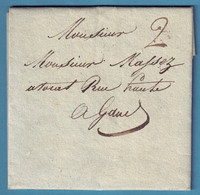 Monsieur 2
Monsieur Massez
avocat Rue haute
a Gand